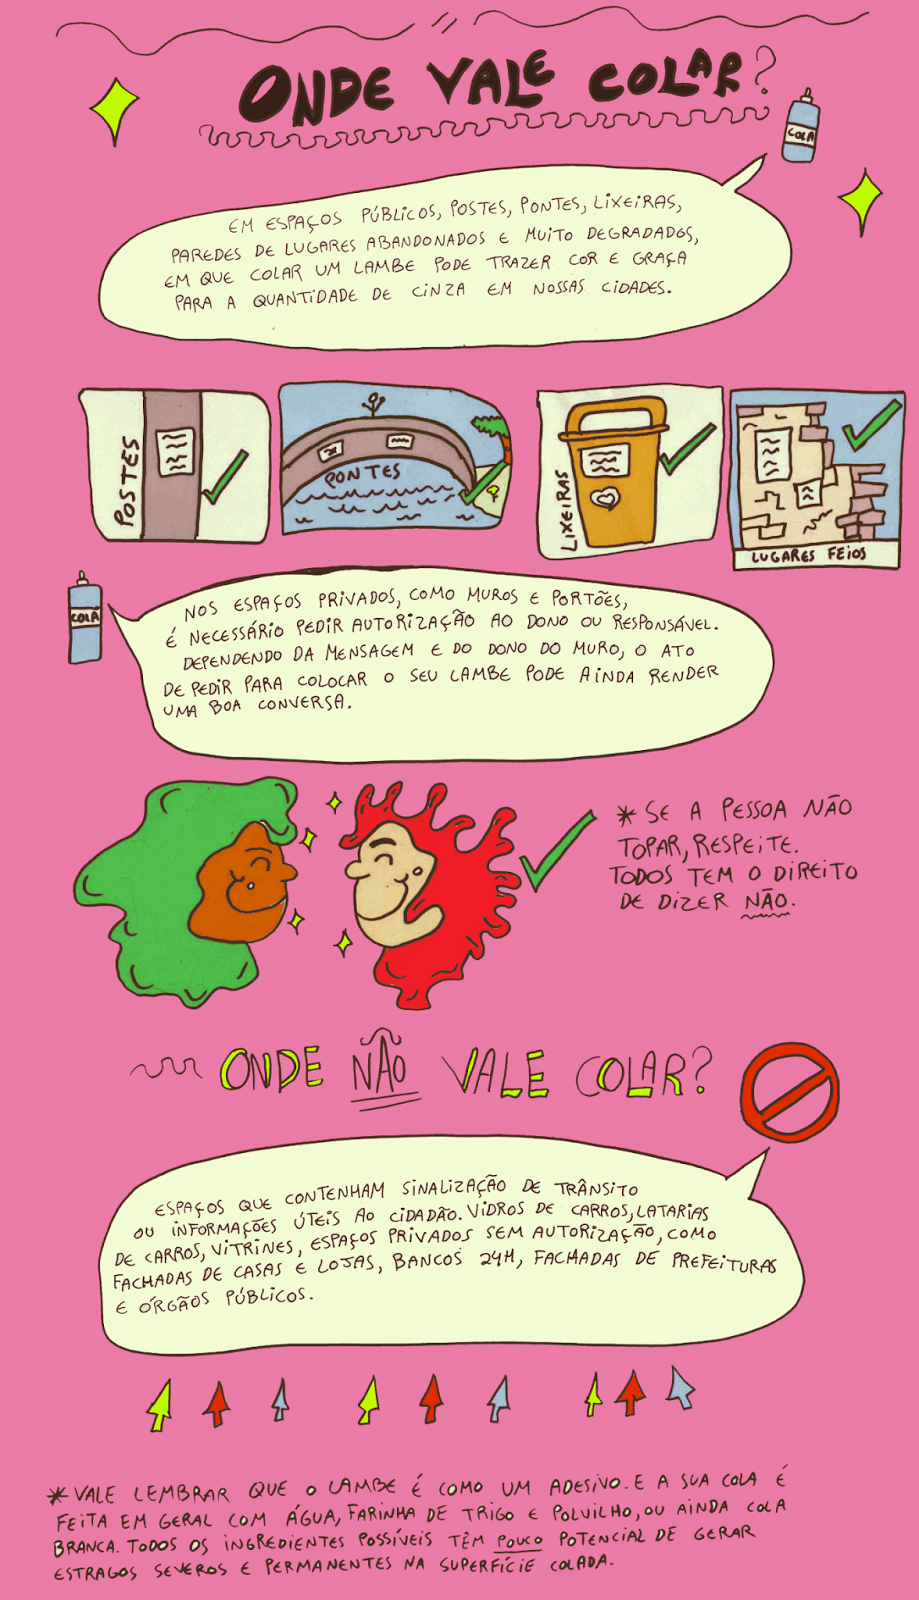 ONDE VALE COLAR?
COLA
EM ESPAÇOS PÚBLICOS, POSTES, PONTES, LIXEIRAS,
PAREDES DE LUGARES ABANDONADOS E MUITO DEGRADADOS,
EM QUE COLAR UM LAMBE PODE TRAZER COR E GRAÇA
PARA A QUANTIDADE DE CINZA EM NOSSAS CIDADES.
POSTES
PONTES
LIXEIRAS
LUGARES FEIOS
COLA
NOS ESPAÇOS PRIVADOS, COMO MUROS E PORTÕES,
É NECESSÁRIO PEDIR AUTORIZAÇÃO AO DONO OU RESPONSÁVEL.
DEPENDENDO DA MENSAGEM E DO DONO DO MURO, O ATO
DE PEDIR PARA COLOCAR O SEU LAMBE PODE AINDA RENDER
UMA BOA CONVERSA.
* SE A PESSOA NÃO
TOPAR, RESPEITE.
TODOS TEM O DIREITO
DE DIZER NÃO.
ONDE NÃO VALE COLAR?
ESPAÇOS QUE CONTENHAM SINALIZAÇÃO DE TRÂNSITO
OU INFORMAÇÕES ÚTEIS AO CIDADÃO. VIDROS DE CARROS, LATARIAS
DE CARROS, VITRINES, ESPAÇOS PRIVADOS SEM AUTORIZAÇÃO, COMO
FACHADAS DE CASAS E LOJAS, BANCOS 24H, FACHADAS DE PREFEITURAS
E ÓRGÃOS PÚBLICOS.
* VALE LEMBRAR QUE O LAMBE É COMO UM ADESIVO. E A SUA COLA É
FEITA EM GERAL COM ÁGUA, FARINHA DE TRIGO E POLVILHO, OU AINDA COLA
BRANCA. TODOS OS INGREDIENTES POSSÍVEIS TÊM POUCO POTENCIAL DE GERAR
ESTRAGOS SEVEROS E PERMANENTES NA SUPERFÍCIE COLADA.